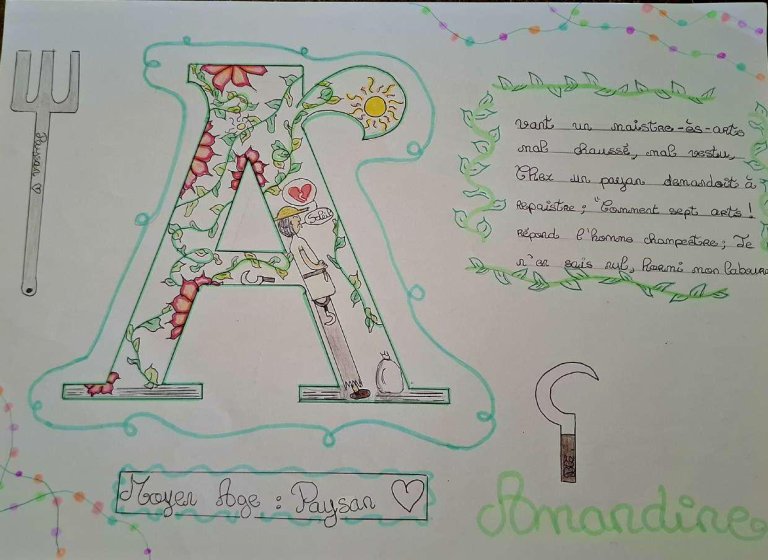 Paysan ♡
Salut
vant un maistre-ès-arts
mal chaussé, mal vestu,
Chez un paysan demandoit à
repaistre; "Comment sept arts!
répond l'homme champestre; Je
n'en sais nul, hormi mon labour
Moyen Age : Paysan ♡
Amandine